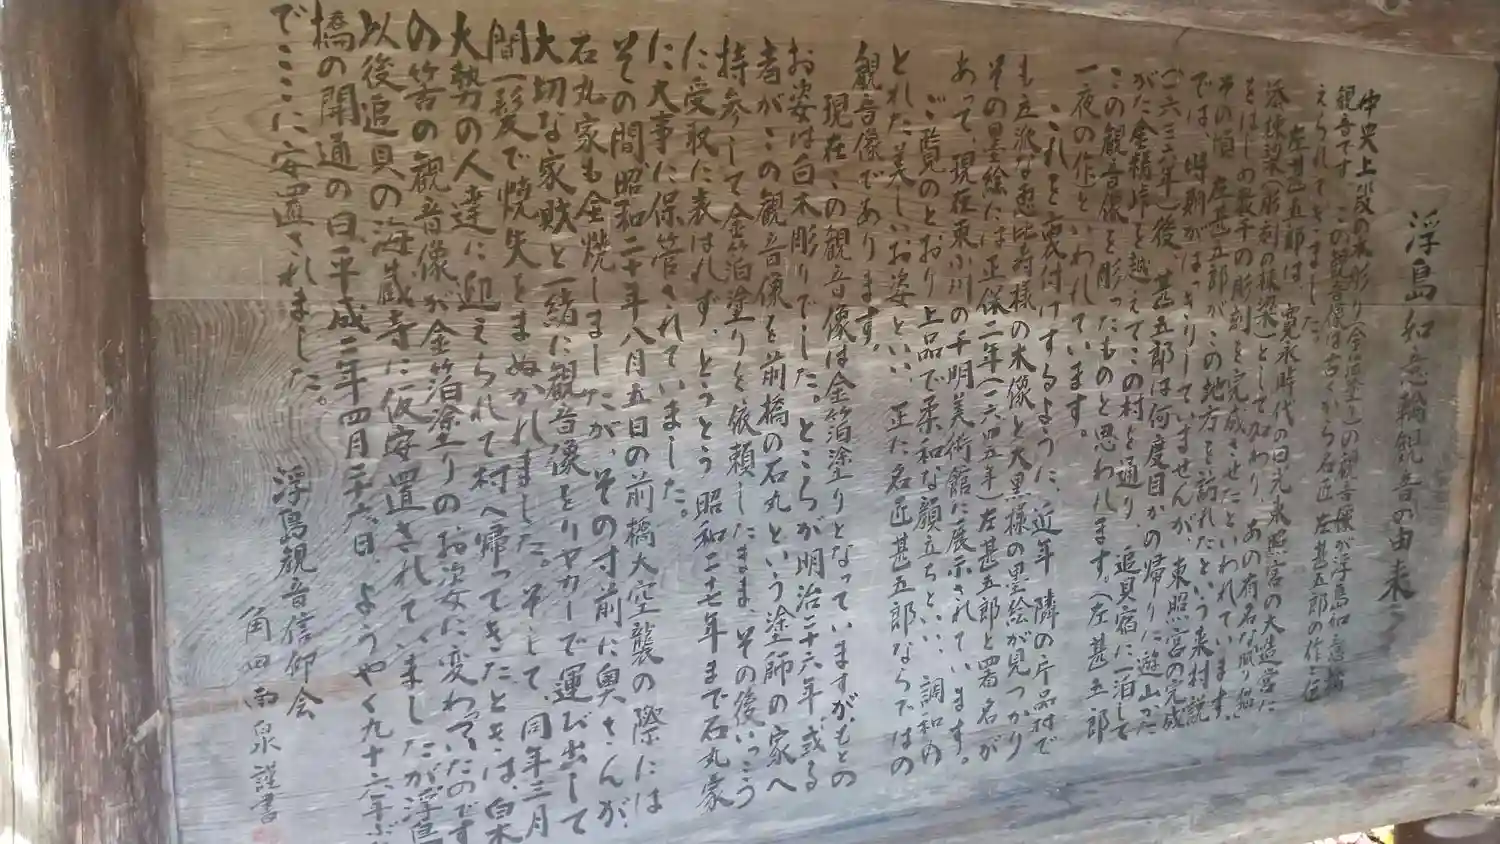 浮島如意輪観音の由来
中央上段の木彫り(金箔塗り)の観音像が浮島如意輪
観音です。この観音像は古くから名匠 左甚五郎の作と伝
えられてきました。
左甚五郎は、寛永時代の日光東照宮の大造営に
添棟梁(彫刻の棟梁)として加わり、あの有名な眠り猫
をはじめ数千の彫刻を完成させたといわれています。
その頃、左甚五郎がこの地方を訪れたという来村説
では、時期がはっきりしていませんが、東照宮の完成
(一六三六年)後、甚五郎は何度目かの帰りに遊山かた
がた金精峠を越えてこの村を通り、追貝宿に一泊して
この観音像を彫ったものと思われます。(左甚五郎
一夜の作)といわれています。
これを裏付けするように、近年 隣の片品村で
も立派な恵比寿様の木像と大黒様の墨絵が見つかり
その墨絵には正保二年(一六四五年)左甚五郎と署名が
あって、現在東小川の千明美術館に展示されています。
ご覧のとおり 上品で柔和な顔立ちといい、調和の
とれた美しいお姿といい、正に名匠甚五郎ならではの
観音像であります。
現在この観音像は金箔塗りとなっていますが、もとの
お姿は白木彫りでした。ところが明治二十六年、或る
者がこの観音像を前橋の石丸という塗師の家へ
持参して金箔塗りを依頼したまま その後いっこう
に受取に表はれず、とうとう 昭和二十七年まで石丸家
に大事に保管されていました。
その間、昭和二十年八月五日の前橋大空襲の際には
石丸家も全焼しましたが、その寸前に奥さんが、
大切な家財と一緒に観音像をリヤカーで運び出して
間一髪で焼失をまぬかれました。そして、同年三月
大勢の人達に迎えられて村へ帰ってきたときは、白木
の筈の観音像が金箔塗りのお姿に変わっていたのです
以後追貝の海蔵寺に仮安置されていましたが浮島
橋の開通の日、平成二年四月二十六日、ようやく九十六年ぶり
でここに安置されました。
浮島観音信仰会
角田南泉謹書